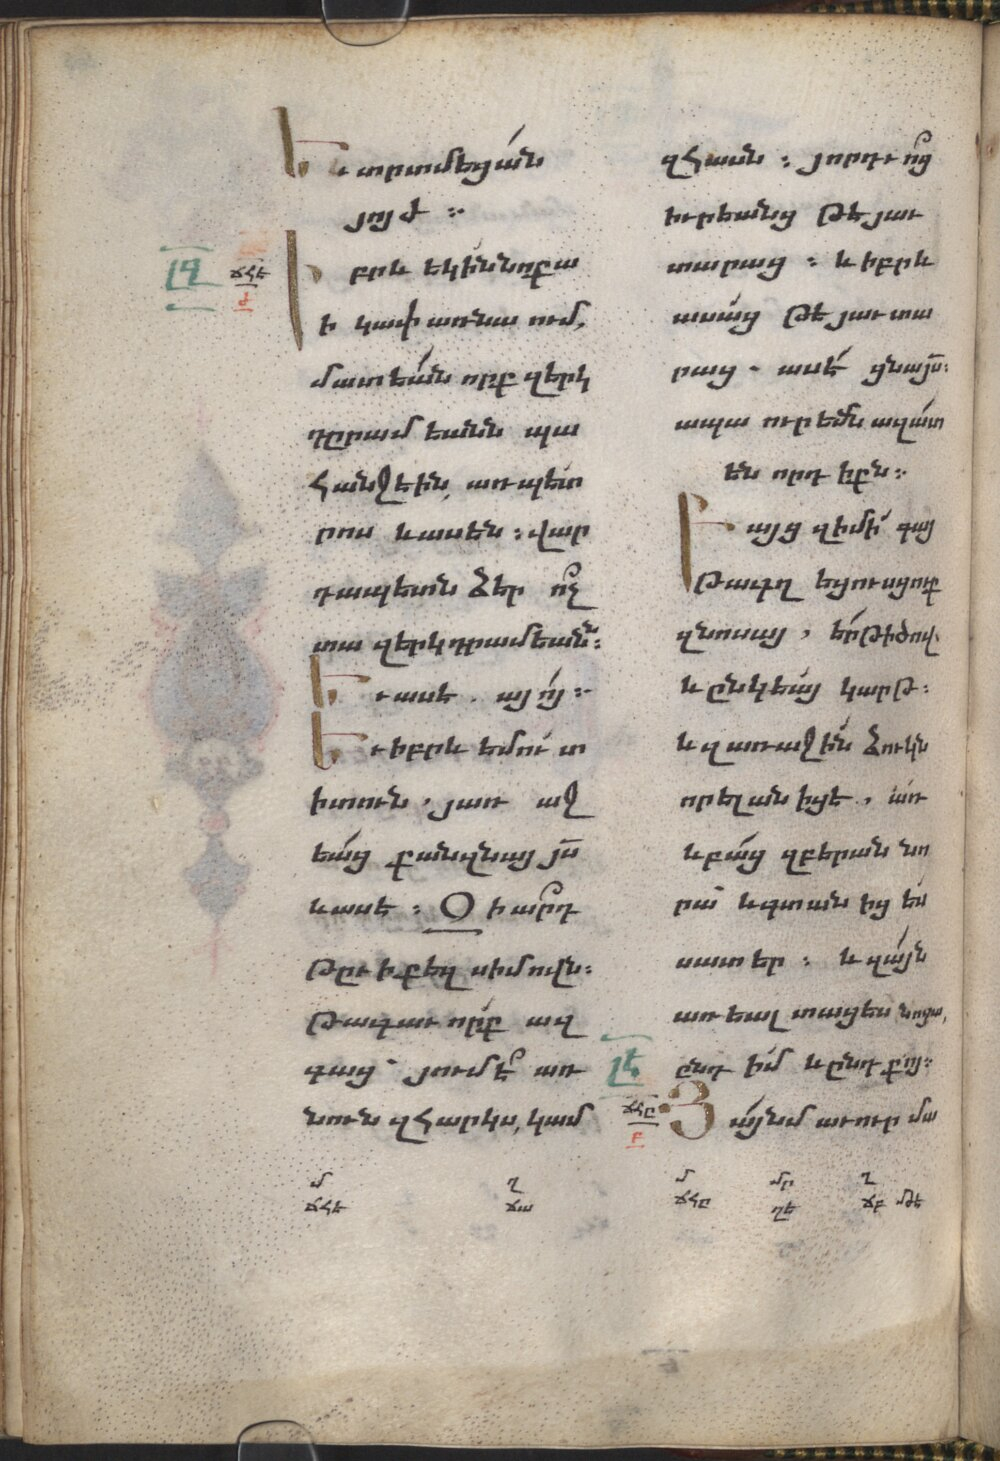 Եւ տրտմեցան
յոյժ ։
ԼԳ ՃՀԷ Ժ
Իբրև եկին նոքա
ի կափառնաում,
մատեան որք զերկ
դըրամեանն պա
հանջէին, առ պետ
րոս և ասեն ։ վար
դապետն ձեր ո՞չ
տա զերկդրամեանն ։
Եւ ասէ . այո՛ ։
Եւ իբրև եմուտ ի
ի տուն , յառաջ
եաց քան զնայ յս
և ասէ ։ Օ ի՞ արդ
թըւի քեզ սիմովն ։
Թագաւորք ազ
գաց յումմէ՞ առ
նուն զհարկս, կամ
զհասն ։ յորդւո՞ց
իւրեանց թէ յաւ
տարաց ։ և իբրև
ասաց թէ յաւտա
րաց . ասէ ցնայս ։
ապա ուրեմն ազատ
են որդիքն ։
Բայց զի մի՛ գայ
թագղեցուսցուք
զնոսայ , ե՛րթ ի ծով.
և ընկեա կարթ ։
և զառաջին ձուկն
որ ելանիցէ , առ
և բաց զբերան նո
րա և գտանիցես
սատեր ։ և զայն
առեալ տացես նոցա,
ԼԷ ընդ իմ և ընդ քոյ ։
ՃՀԸ Բ Յայնմ աւուր մա
մ ղ մ մր ղ
ՃՀԷ ՃԱ ՃՀԸ ՂԵ ՃԲ ՄԹԷ